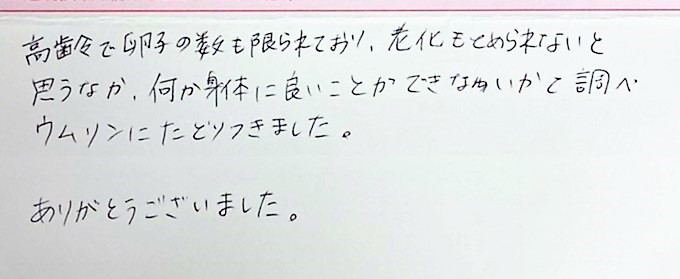 高歯令で卵子の数も限られており、老化もとめられないと
思うなか、何か身体に良いことができないかと調べ
ウムリンにたどりつきました。
ありがとうございました。